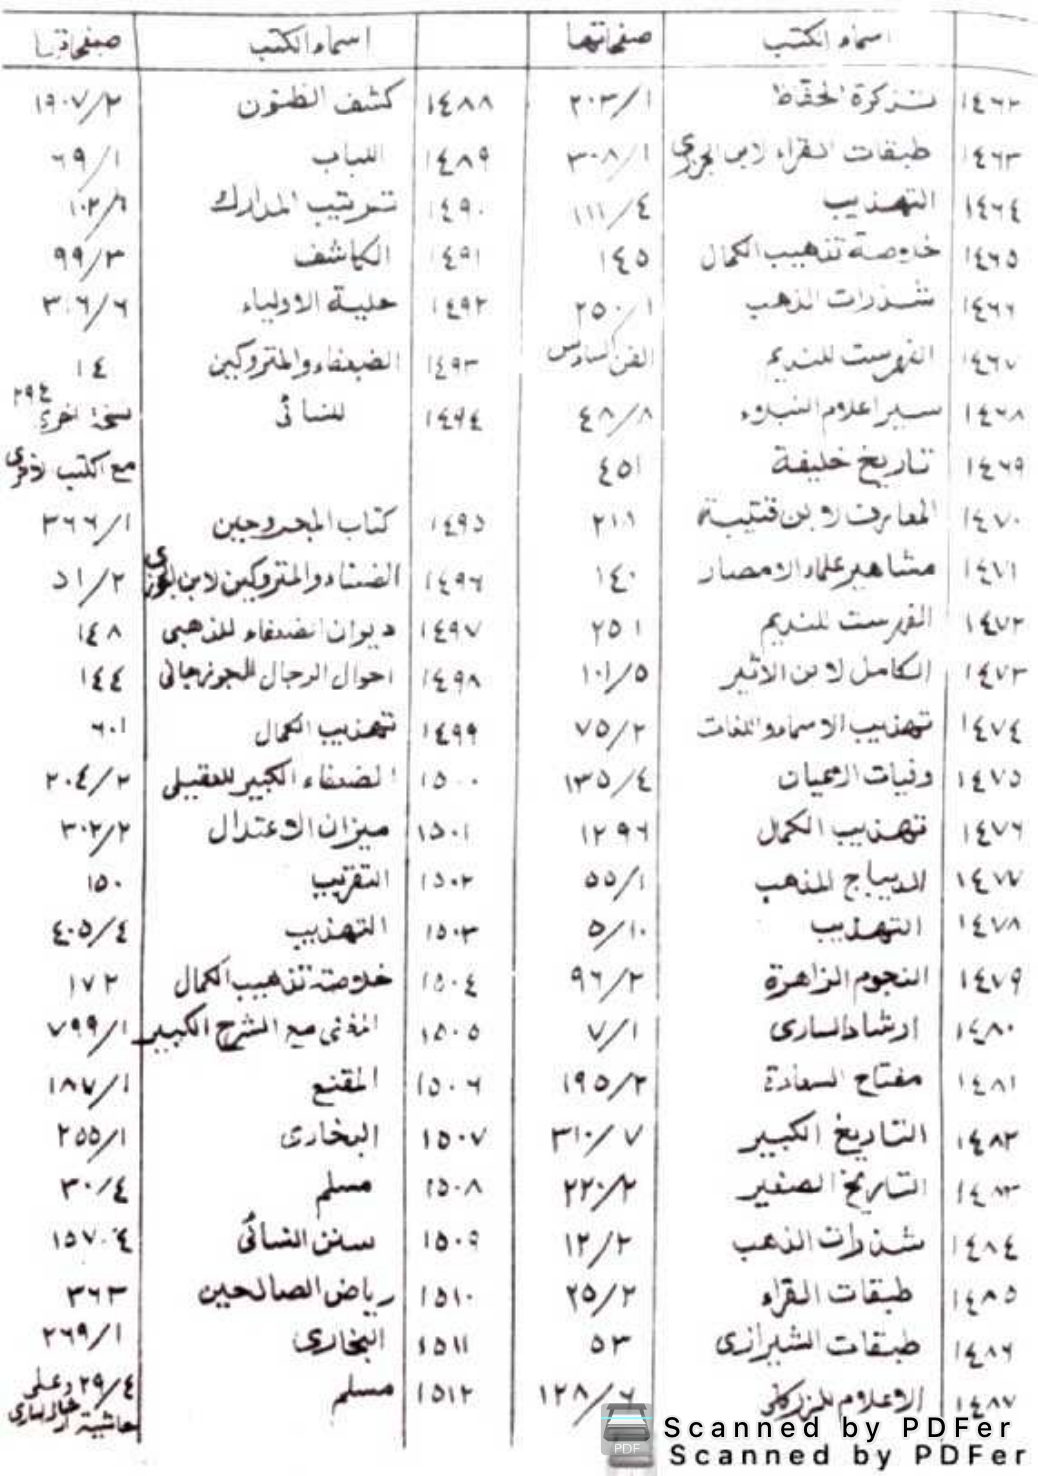 اسماء الكتب صفحاتها اسماء الكتب صفحاتها
١٤٦٢ تذكرة الحفاظ ٢٠٣/١ ١٤٨٨ كشف الظنون ١٩٠٧/٢
١٤٦٣ طبقات القراء لابن الجزري ٣٠٨/١ ١٤٨٩ اللباب ٦٩/١
١٤٦٤ التهذيب ١١١/٤ ١٤٩٠ ترتيب المدارك ١٠٢/٦
١٤٦٥ خلاصة تذهيب الكمال ١٤٥ ١٤٩١ الكاشف ٩٩/٣
١٤٦٦ شذرات الذهب ٢٥٠/١ ١٤٩٢ حلية الاولياء ٣٠٦/٦
١٤٦٧ الفهرست للنديم الفن السادس ١٤٩٣ الضعفاء والمتروكين ١٤
١٤٦٨ سير اعلام النبلاء ٤٨/٨ ١٤٩٤ للنسائى ٢٩٤ نسخة اخرى
١٤٦٩ تاريخ خليفة ٤٥١ مع الكتب الاخرى
١٤٧٠ المعارف لابن قتيبة ٢١١ ١٤٩٥ كتاب المجروحين ٣٦٦/١
١٤٧١ مشاهير علماء الامصار ١٤٠ ١٤٩٦ الضعفاء والمتروكين لابن الجوزى ٥١/٢
١٤٧٢ الفهرست للنديم ٢٥١ ١٤٩٧ ديوان الضعفاء للذهبى ١٤٨
١٤٧٣ الكامل لابن الاثير ١٠١/٥ ١٤٩٨ احوال الرجال للجوزجانى ١٤٤
١٤٧٤ تهذيب الاسماء واللغات ٧٥/٢ ١٤٩٩ تهذيب الكمال ٦٠١
١٤٧٥ وفيات الاعيان ١٣٥/٤ ١٥٠٠ الضعفاء الكبير للعقيلى ٢٠٤/٢
١٤٧٦ تهذيب الكمال ١٢٩٦ ١٥٠١ ميزان الاعتدال ٣٠٢/٢
١٤٧٧ الديباج المذهب ٥٥/١ ١٥٠٢ التقريب ١٥٠
١٤٧٨ التهذيب ٥/١٠ ١٥٠٣ التهذيب ٤٠٥/٤
١٤٧٩ النجوم الزاهرة ٩٦/٢ ١٥٠٤ خلاصة تذهيب الكمال ١٧٢
١٤٨٠ ارشاد السارى ٧/١ ١٥٠٥ المغنى مع الشرح الكبير ٧٩٩/١
١٤٨١ مفتاح السعادة ١٩٥/٢ ١٥٠٦ المقنع ١٨٧/١
١٤٨٢ التاريخ الكبير ٣١٠/٧ ١٥٠٧ البخارى ٢٥٥/١
١٤٨٣ التاريخ الصغير ٢٢٠/٢ ١٥٠٨ مسلم ٣٠/٤
١٤٨٤ شذرات الذهب ١٢/٢ ١٥٠٩ سنن النسائى ١٥٧٠٤
١٤٨٥ طبقات القراء ٢٥/٢ ١٥١٠ رياض الصالحين ٣٦٣
١٤٨٦ طبقات الشيرازى ٥٣ ١٥١١ البخارى ٢٦٩/١
١٤٨٧ الاعلام للزركلى ١٢٨/٦ ١٥١٢ مسلم ٢٩/٤ وعلى
حاشية
PDF
Scanned by PDFer
Scanned by PDFer